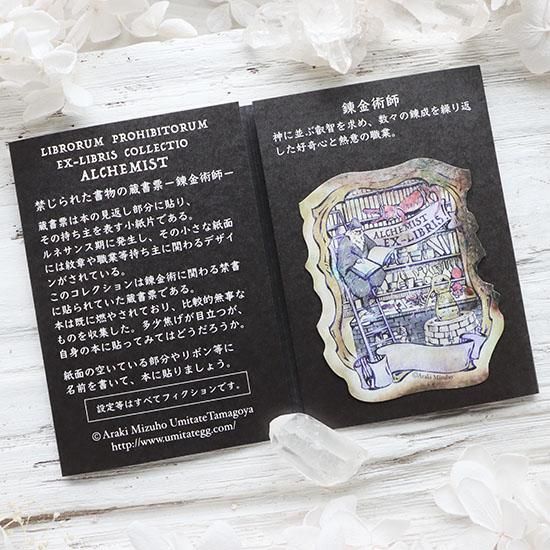 LIBRORUM PROHIBITORUM
EX-LIBRIS COLLECTIO
ALCHEMIST
禁じられた書物の蔵書票－錬金術師－
蔵書票は本の見返し部分に貼り、
その持ち主を表す小紙片である。
ルネサンス期に発生し、その小さな紙面
には紋章や職業等持ち主に関わるデザイ
ンがされている。
このコレクションは錬金術に関わる禁書
に貼られていた蔵書票である。
本は既に燃やされており、比較的無事な
ものを収集した。多少焦げが目立つが、
自身の本に貼ってみてはどうだろうか。
紙面の空いている部分やリボン等に
名前を書いて、本に貼りましょう。
設定等はすべてフィクションです。
©Araki Mizuho UmitateTamagoya
http://www.umitategg.com/
錬金術師
神に並ぶ叡智を求め、数々の錬成を繰り返
した好奇心と熱意の職業。
ALCHEMIST
EX-LIBRIS
©Araki Mizuho